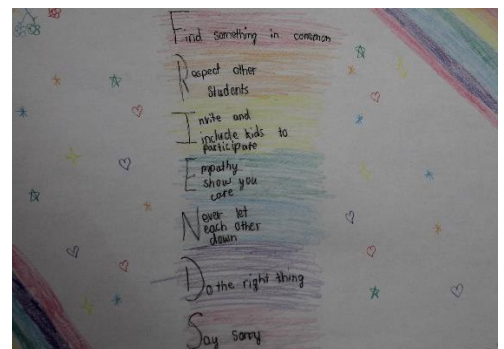 Find something in common
Respect other
Students
Invite and
include kids to
participate
Empathy
show you
care
Never let
each other
down
Do the right thing
Say sorry